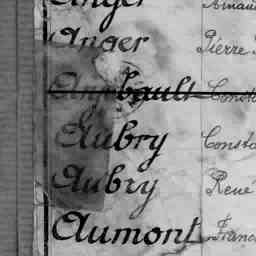 Anger Arnaud
Anger Pierre
Angibault Consta
Aubry Consta
Aubry René
Aumont Franc